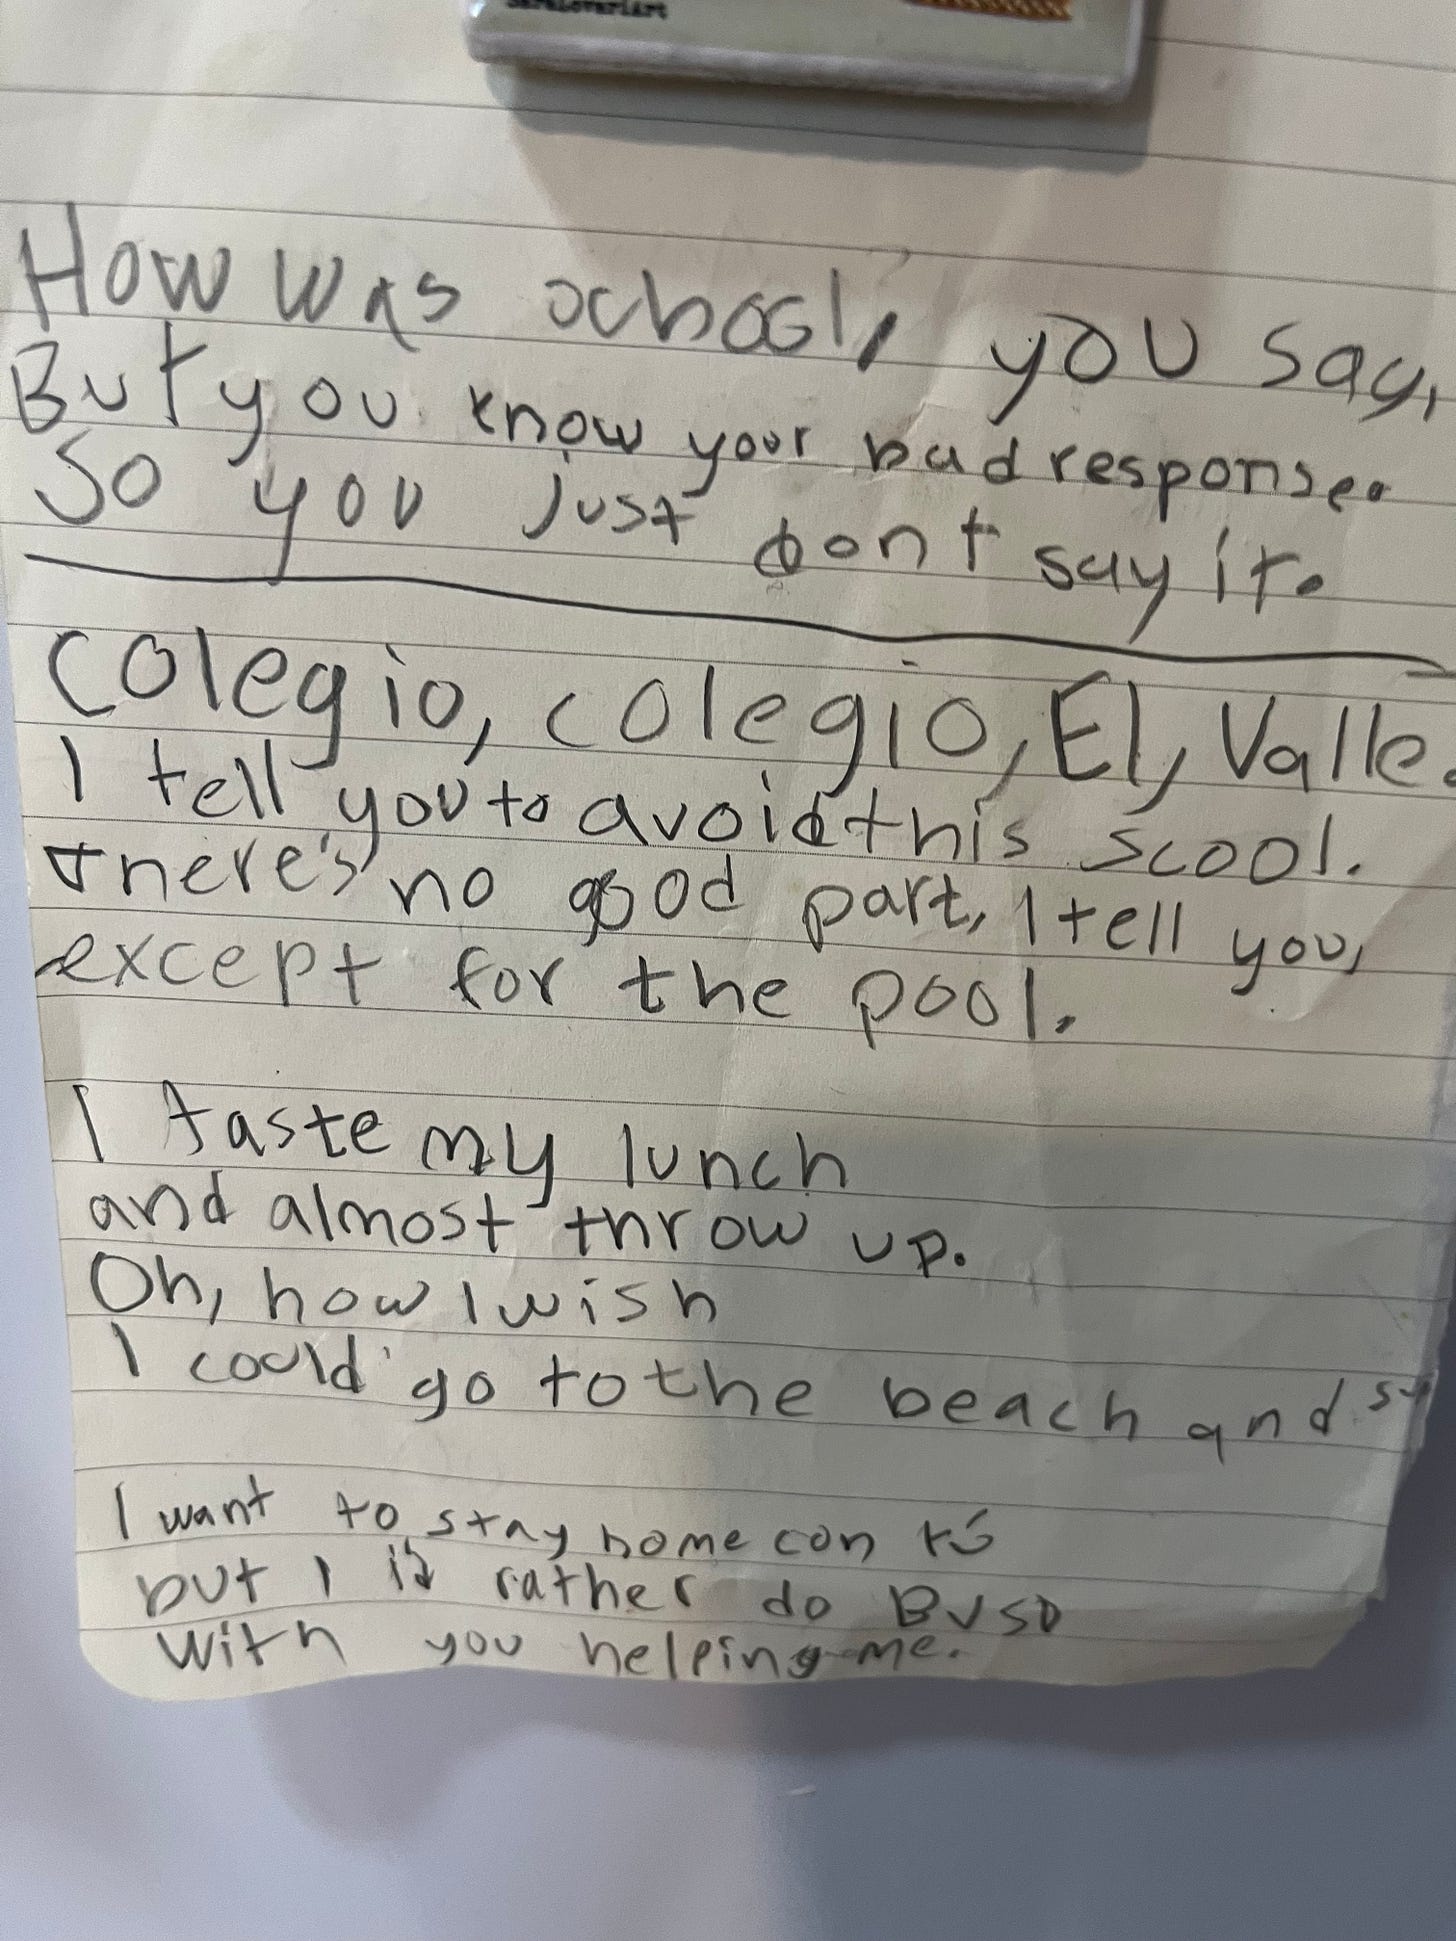 How was school, you say,
But you know your bad response.
So you just dont say it.
Colegio, colegio, El, Valle.
I tell you to avoid this scool.
there's no good part, I tell you,
except for the pool.
I taste my lunch
and almost throw up.
Oh, how I wish
I could go to the beach and
I want to stay home con tú
but I rather do BVSD
with you helping me.